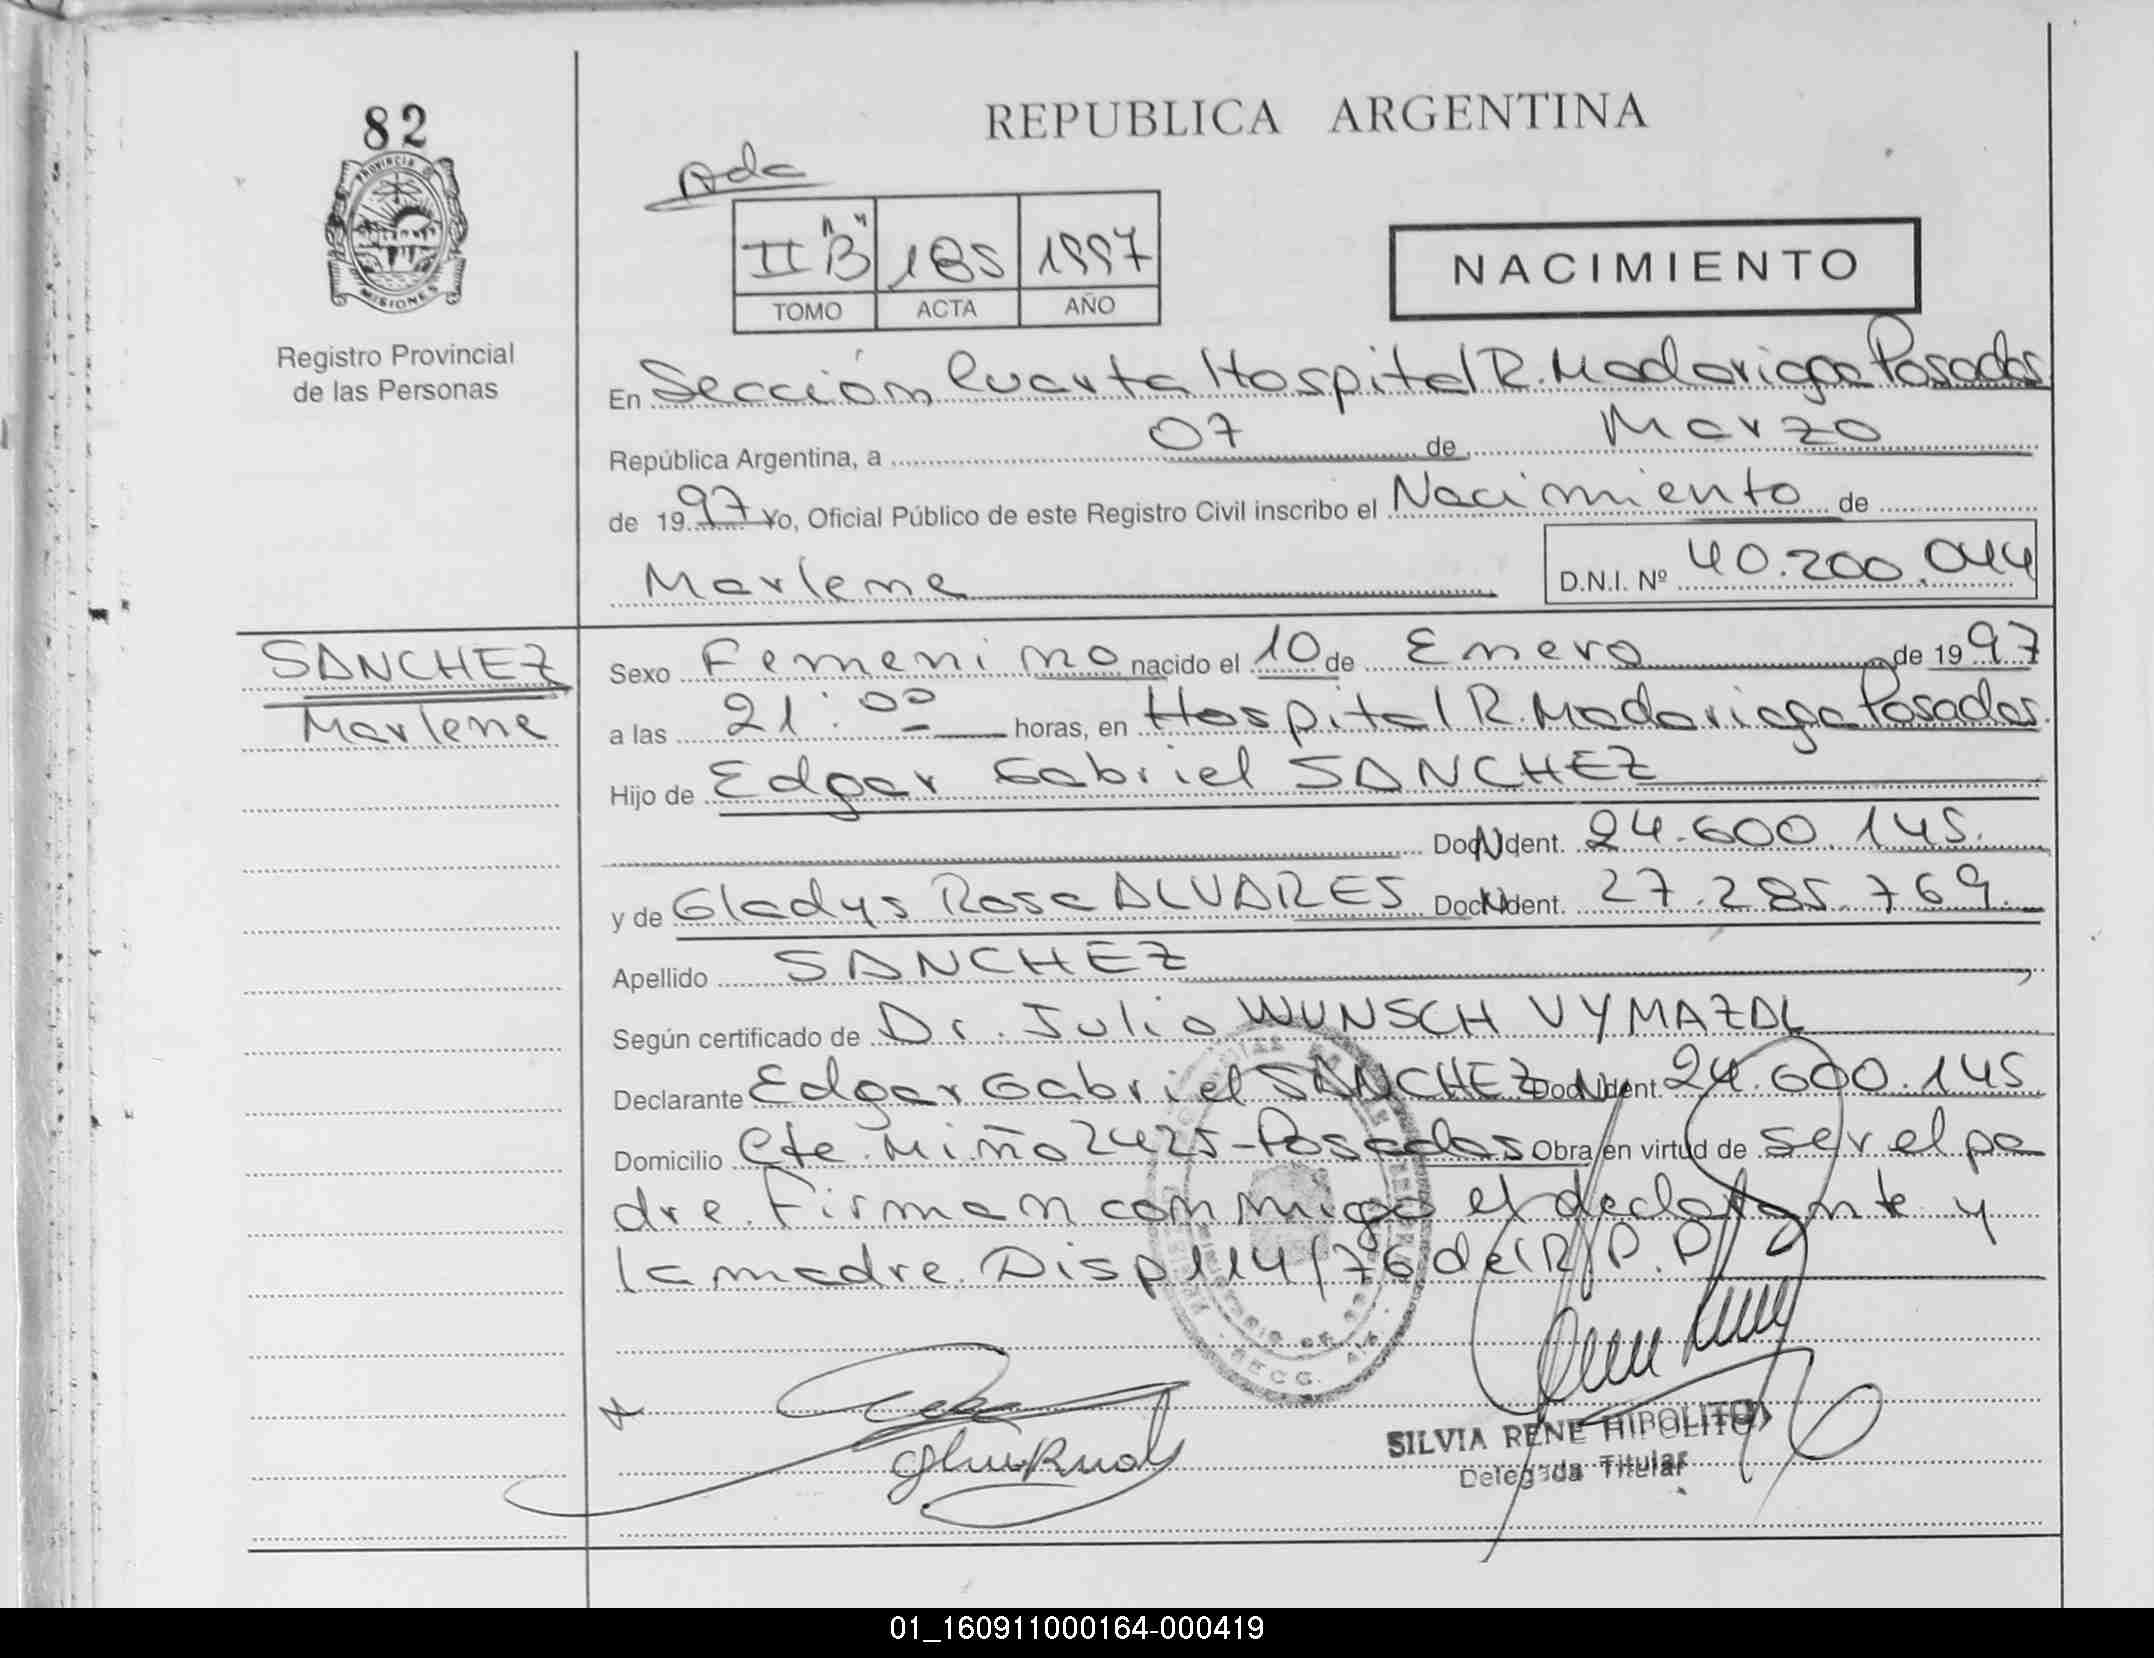 82
PROVINCIA DE
MISIONES
Registro Provincial
de las Personas
REPUBLICA ARGENTINA
Ada
II "B" 185 1997
TOMO ACTA AÑO
NACIMIENTO
En Sección Cuarta Hospital R. Madariaga Posadas
República Argentina, a 07 de Marzo
de 1997 Yo, Oficial Público de este Registro Civil inscribo el Nacimiento de
Marlene D.N.I. Nº 40.200.044
SANCHEZ
Marlene
Sexo Femenino nacido el 10 de Enero de 1997
a las 21:00 horas, en Hospital R. Madariaga Posadas.
Hijo de Edgar Gabriel SANCHEZ
Doc. Ident. 24.600.145.
y de Gladys Rosa ALVARES Doc. Ident. 27.285.769.
Apellido SANCHEZ
Según certificado de Dr. Julio WUNSCH VYMAZAL
Declarante Edgar Gabriel SANCHEZ Doc. Ident. 24.600.145
Domicilio Cte. Miño 2425-Posadas Obra en virtud de ser el pa
dre. Firman conmigo el declarante y
la madre. Disp 114/76 del R.P.P.
SECC. 4ta.
SILVIA RENE HIPOLITO
Delegada Titular
01_160911000164-000419